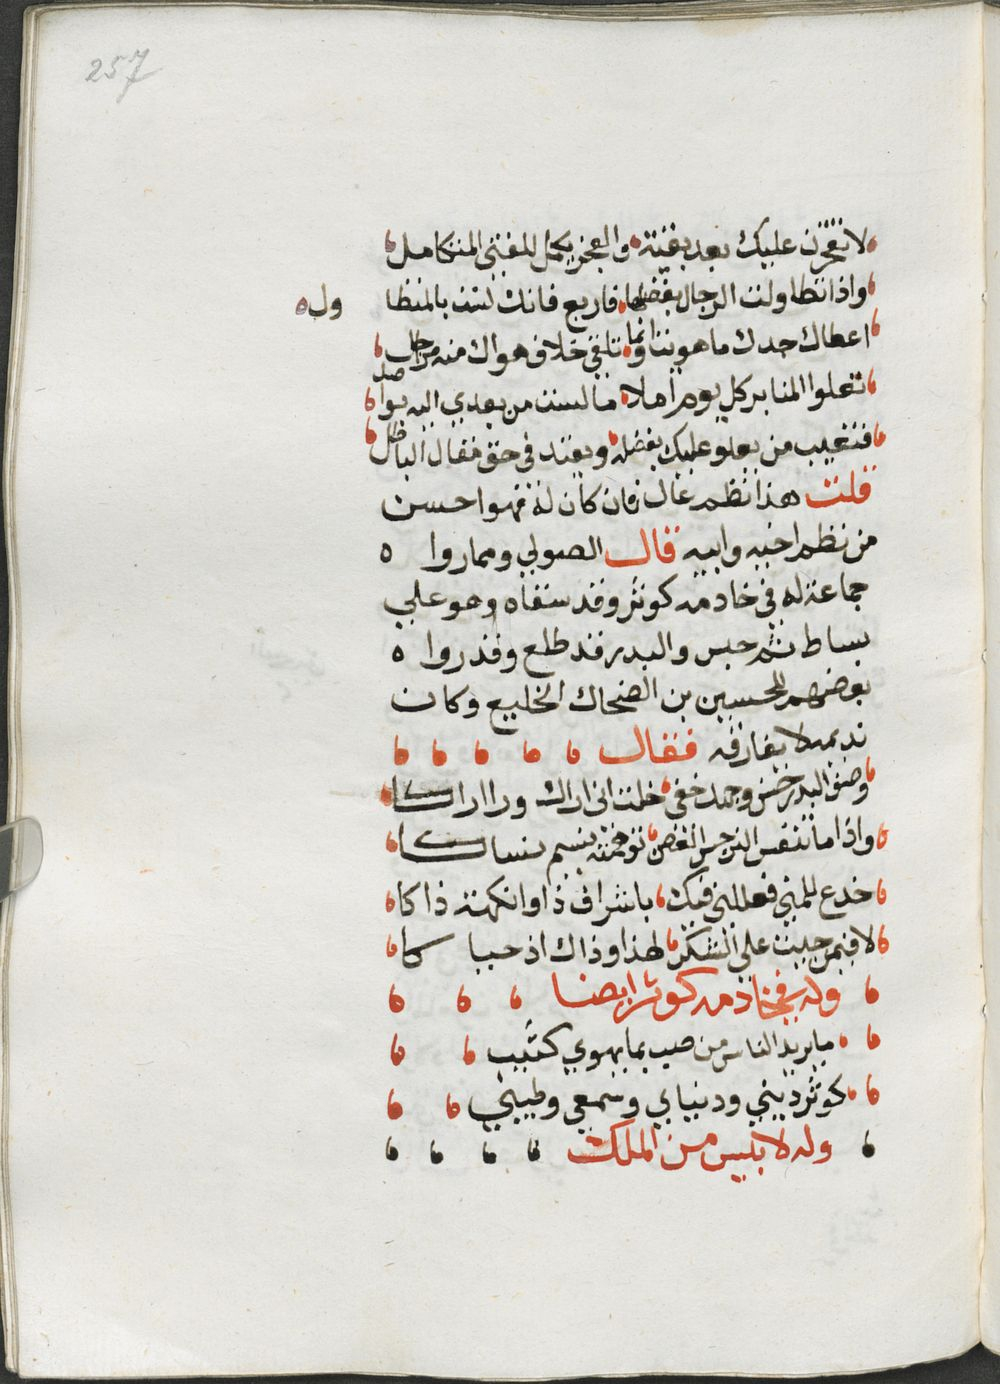 257
لا تفخرن عليك بعد بقية والفخر يكمل للفتى المتكامل
واذا تطاولت الرجال بفضلها فاربع فانك لست بالمتطا
ول
اعطاك جدك ما هويت وانما تلقى خلاف هواك منه مراجل
تعلوا المنابر كل يوم املا ما لست من بعدي اليه بوا
صل
فتعيب من يعلو عليك بفضله وتعيد في حقي مقال الباطل
قلت هذا نظم عال فان كان له فهو احسن
من نظم اخيه وابيه قال الصولي ومما روا
جماعة له في خادمه كوثر وقد سقاه وهو علي
بساط نرجس والبدر قد طلع وقد روا
بعضهم للحسين بن الضحاك الخليع وكان
نديمه لا يفارقه فقال
وصف البدر حسن وجهك حتى خلت اني اراك ورا اراكا
واذا ما تنفس النرجس الغض توهمته نسيم نساكا
خدع للمنى تعللني فيك باشراق ذا وانكهة ذاكا
لاقيمن حييت على الشكر لهذا وذاك اذ حيا كا
وله في خادمه كوثر ايضا
ما يريد الناس من صب بما يهوي كئيب
كوثر ديني ودنياي وسمعي وطبيبي
وله لا بليس من الملك